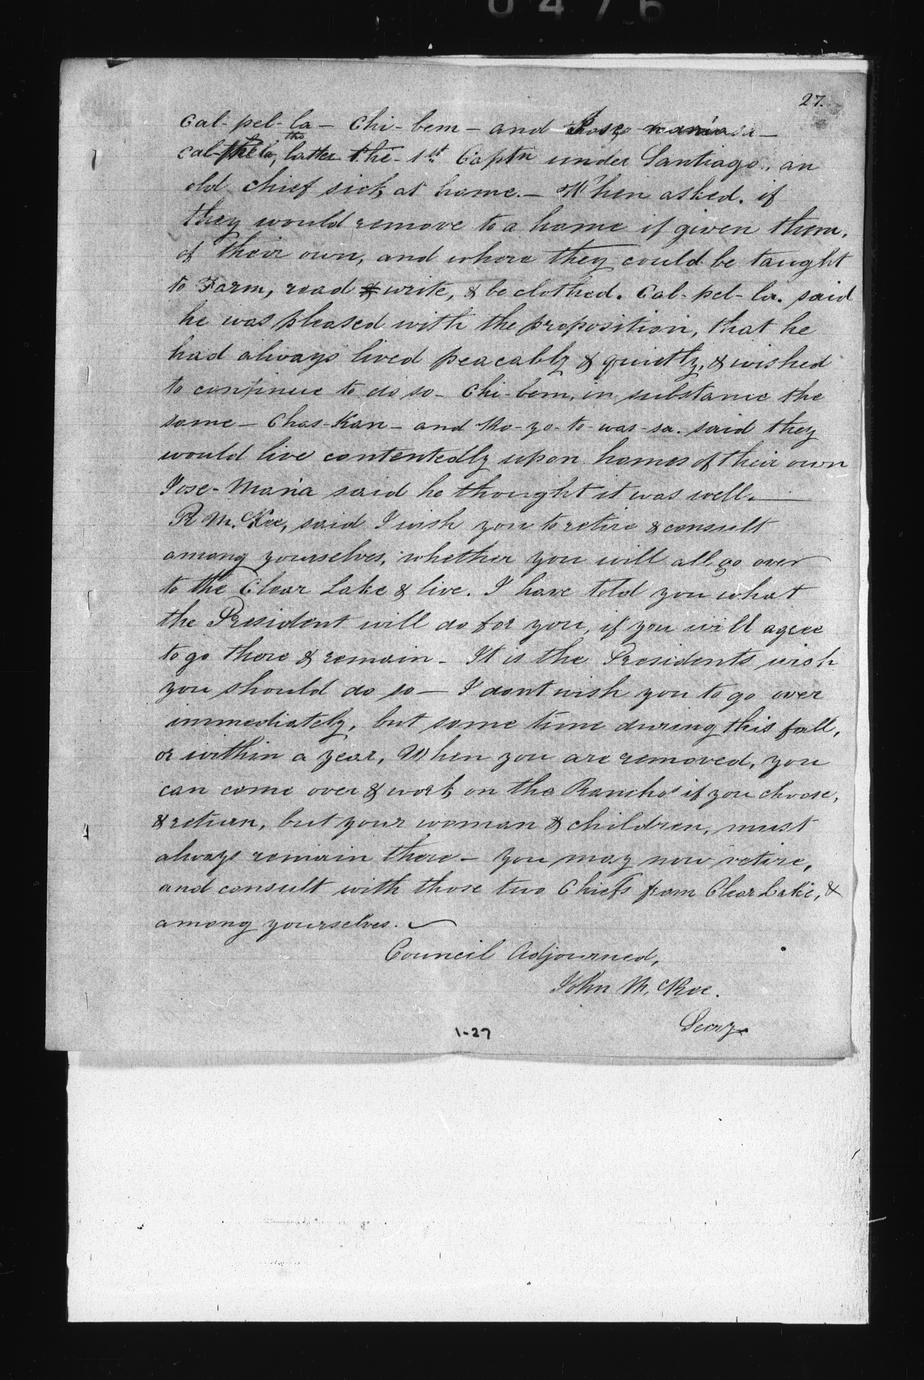 0476
27.
Cal-pel-la – Chi-bem – and Jose maria –
the latter the 1st Captn under Santiago, an
old chief sick at home. – When asked, if
they would remove to a home if given them,
of their own, and where they could be taught
to Farm, read & write, & be clothed. Cal-pel-la. said
he was pleased with the proposition, that he
had always lived peacably & quietly, & wished
to continue to do so – Chi-bem, in substance the
same – Chas-Kan – and Mo-yo-to-was-sa. said they
would live contentedly upon homes of their own
Jose-Maria said he thought it was well. —
R McKee, said I wish you to retire & consult
among yourselves, whether you will all go over
to the Clear Lake & live. I have told you what
the President will do for you, if you will agree
to go there & remain – It is the Presidents wish
you should do so – I dont wish you to go over
immediately, but some time during this fall,
or within a year, When you are removed, you
can come over & work on the Ranchos if you choose,
& return, but your woman & children, must
always remain there – you may now retire,
and consult with those two Chiefs from Clear Lake, &
among yourselves.
Council Adjourned,
John McKee.
Secry
1-27